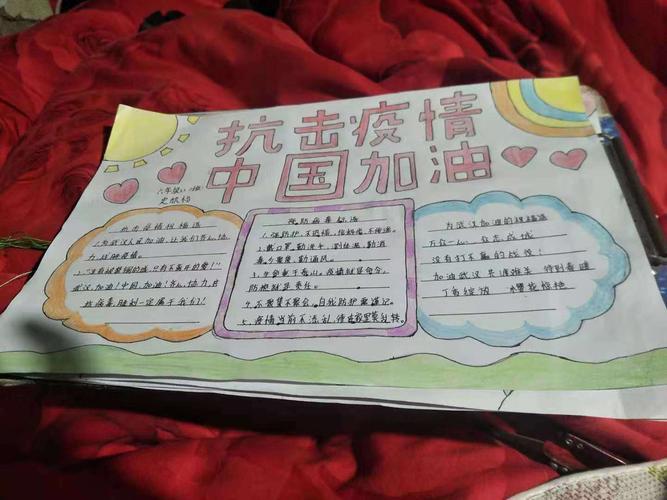 抗击疫情
中国加油
六年级
抗击疫情祝福语
1.为武汉人民加油,让我们齐心协
力,战胜疫情。
只有不离开的爱!"
武汉加油!中国加油!齐心协力,战
胜病毒,胜利一定属于我们!
预防病毒标语
1.强防护,不恐慌,信科学,不传谣。
2.戴口罩勤洗手,测体温,勤消
毒,少聚集,勤通风。
3.生命重于泰山,疫情就是命令,
防控就是责任。
4.不聚餐不聚会,自我防护要谨记。
5.疫情当前不添乱,待在家里莫乱转。
为武汉加油的祝福语
万众一心 众志成城
没有打不赢的战役!
加油武汉 共渡难关 待到春暖
丁香绽放 樱花惊艳